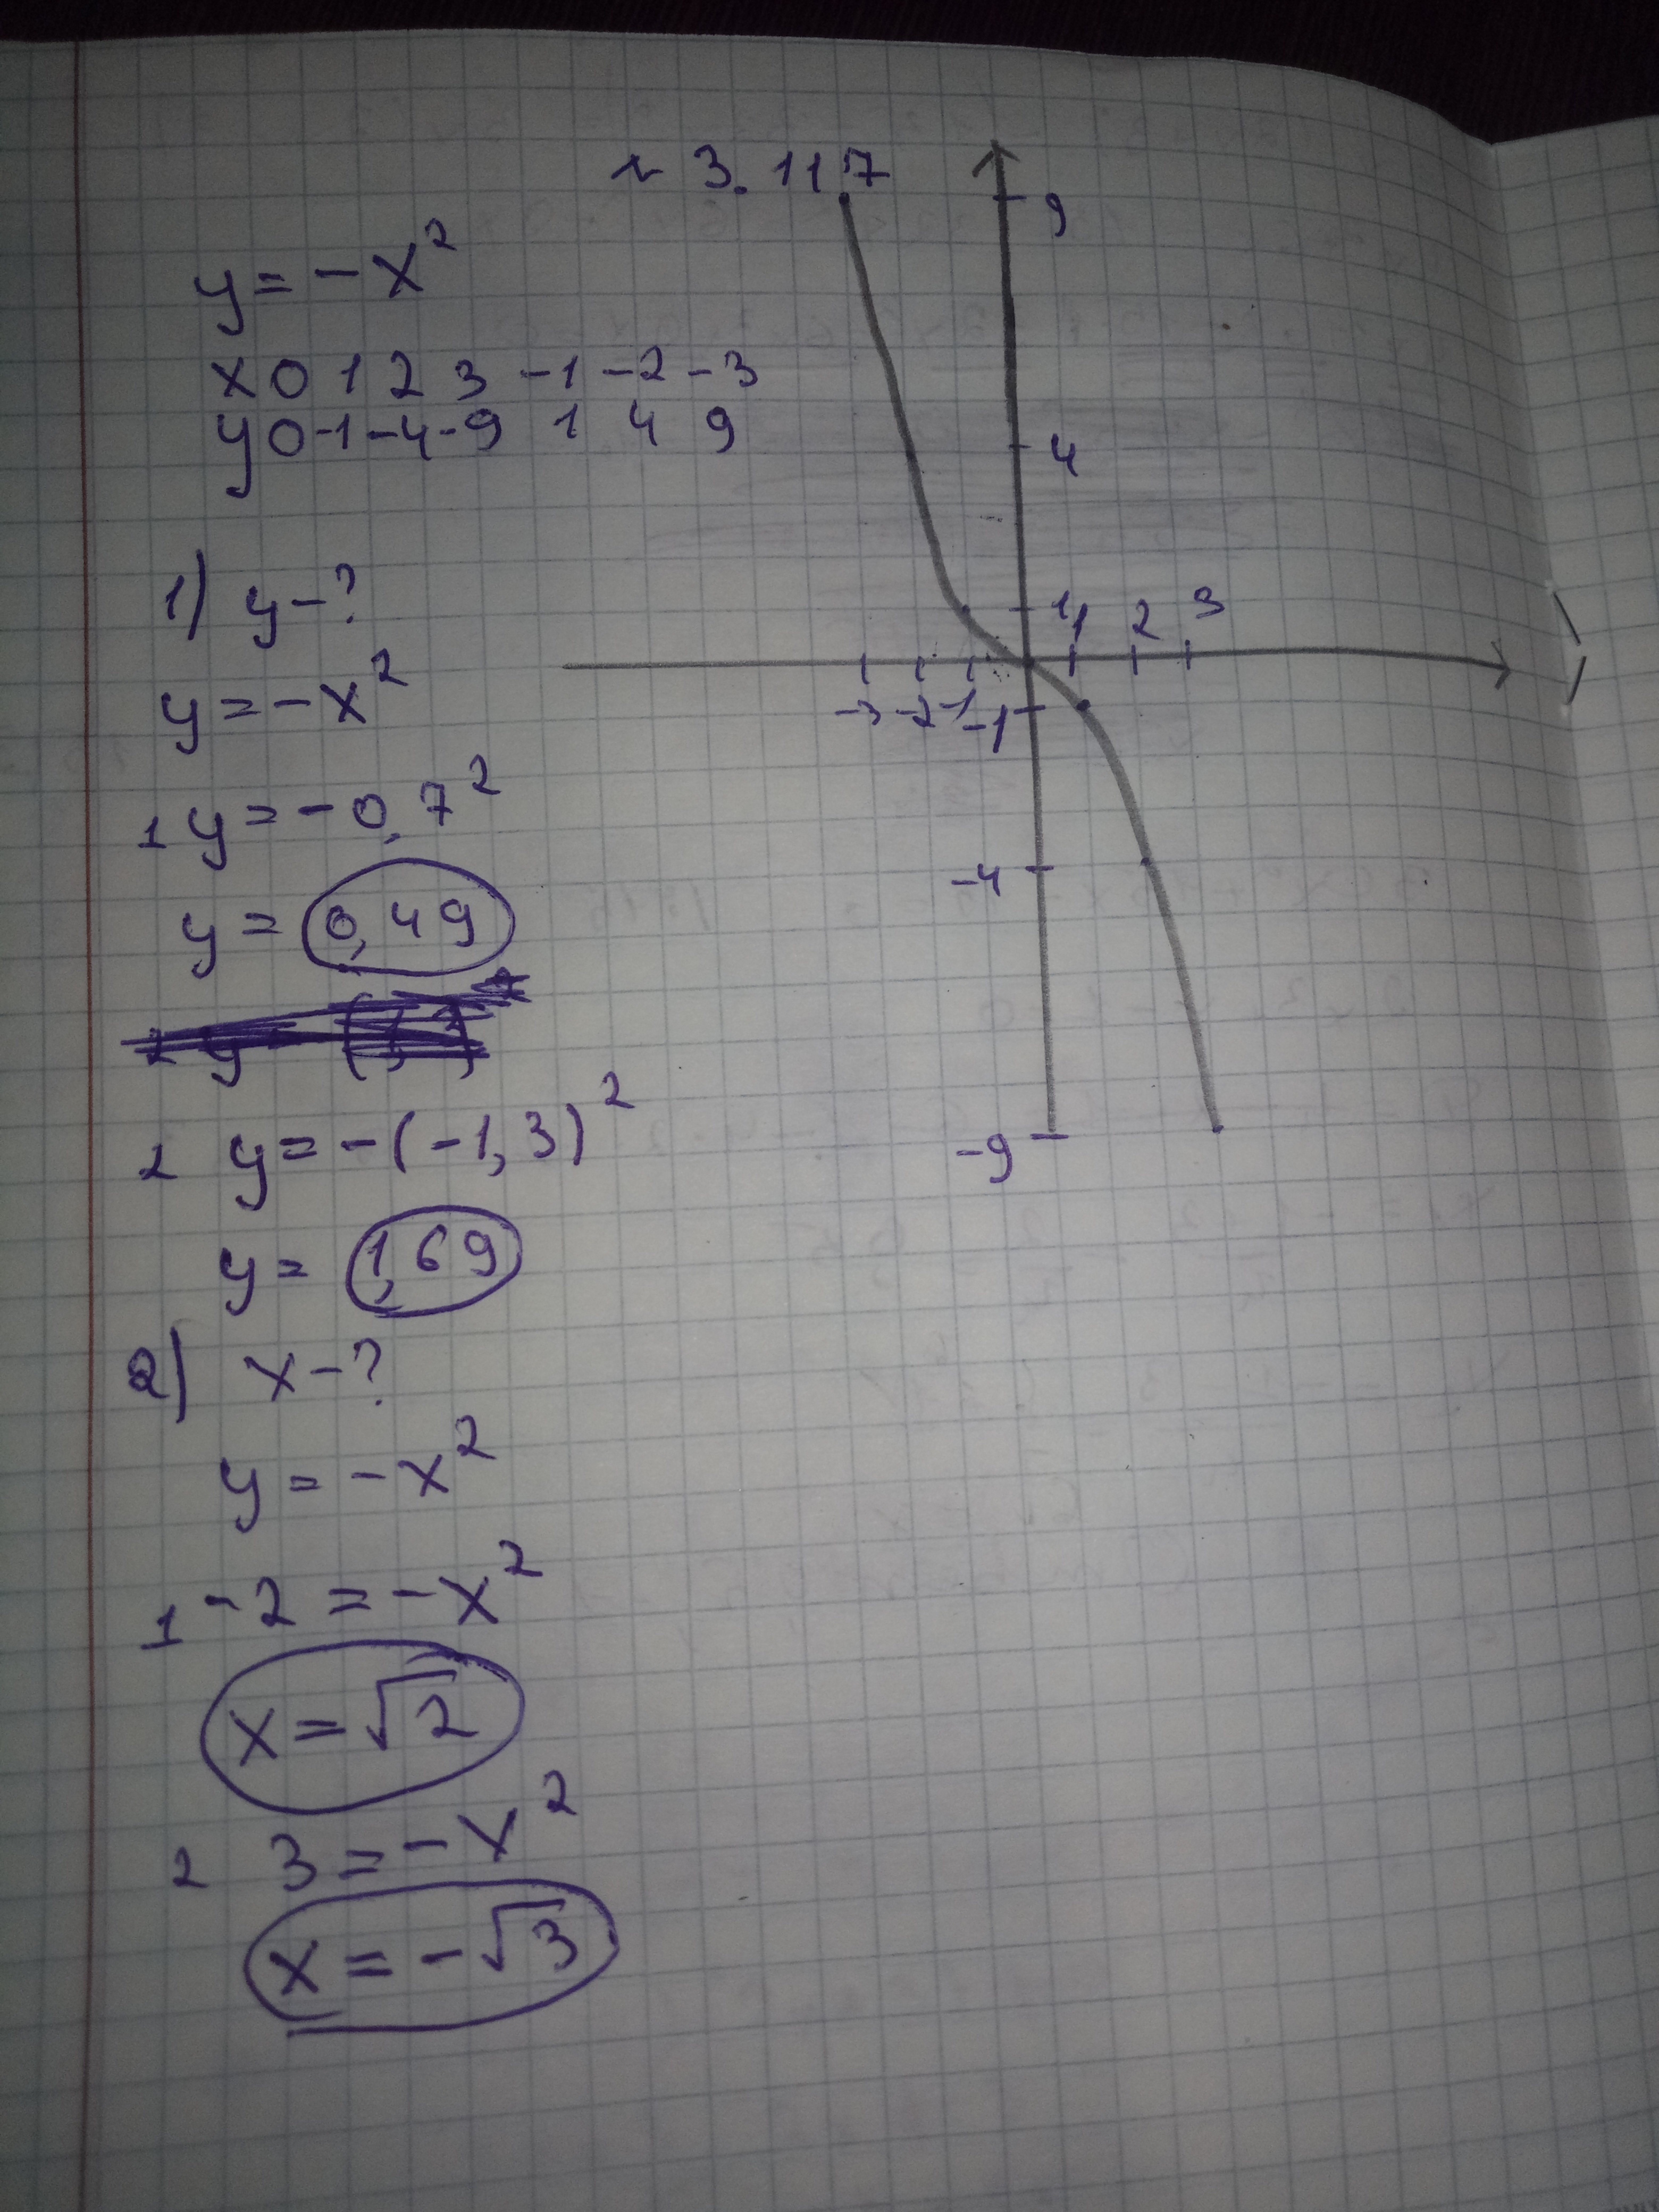 н 3.117
y = -x²
x 0 1 2 3 -1 -2 -3
y 0 -1 -4 -9 1 4 9
1) y - ?
y = -x²
1 y = -0,7²
y = 0,49
2 y = -(-1,3)²
y = 1,69
2) x - ?
y = -x²
1 -2 = -x²
x = √2
2 3 = -x²
x = -√3
9
4
1
1 2 3
-3 -2 -1
-1
-4
-9